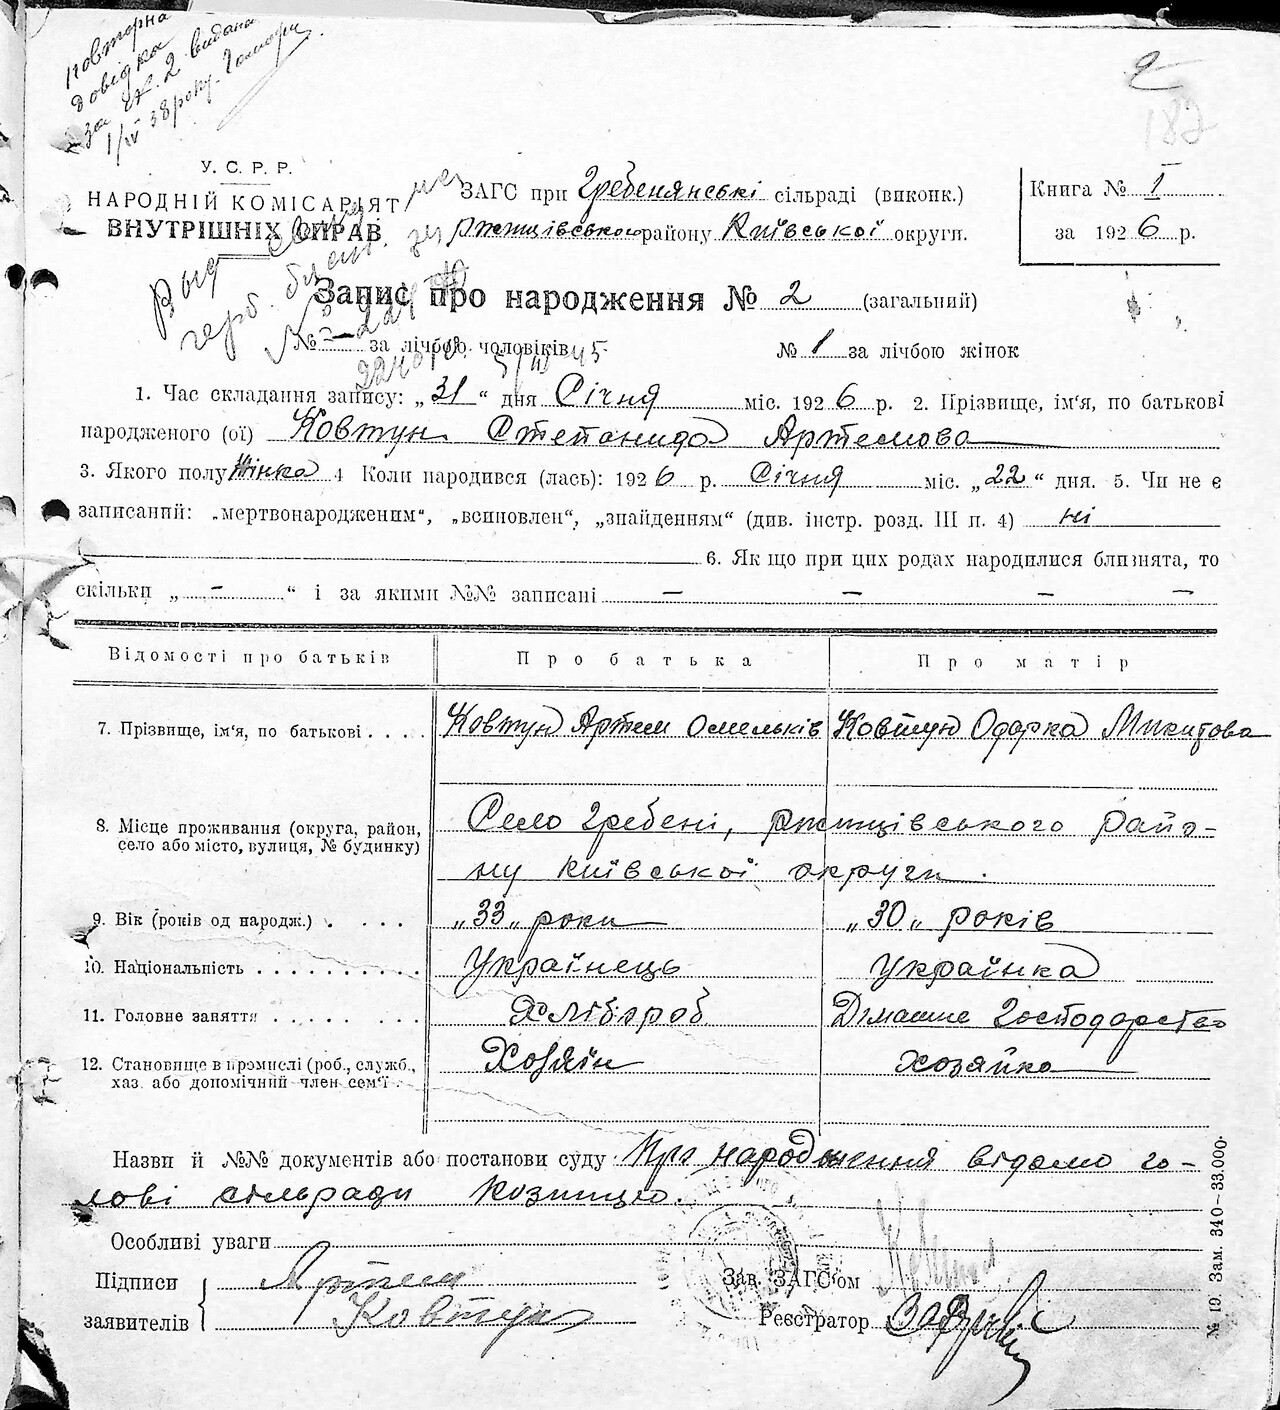 повторна
довідка
за № 2 видана
1/IV 38 року.
2
187
У. С. Р. Р.
НАРОДНІЙ КОМІСАРІЯТ
ВНУТРІШНІХ СПРАВ
ЗАГС при Гребенянські сільраді (виконк.)
Ржищівського району Київської округи.
Книга № I
за 1926 р.
Запис про народження № 2 (загальний)
№ – за лічбою чоловіків
№ 1 за лічбою жінок
1. Час складання запису: „31“ дня Січня міс. 1926 р. 2. Прізвище, ім'я, по батькові
народженого (ої) Ковтун Степанида Артемова
3. Якого полу Жінка 4 Коли народився (лась): 1926 р. Січня міс. „22“ дня. 5. Чи не є
записаний: „мертвонародженим“, „всиновлен“, „знайденням“ (див. інстр. розд. III п. 4) ні
6. Як що при цих родах народилися близнята, то
скільки „ – “ і за якими №№ записані – – – –
Відомості про батьків Про батька Про матір
7. Прізвище, ім'я, по батькові . . . . Ковтун Артем Омельків Ковтун Одарка Микитова
8. Місце проживання (округа, район,
село або місто, вулиця, № будинку)
Село Гребені, Ржищівського райо-
ну Київської округи.
9. Вік (років од народж.) . . . . „33„ роки „30„ років
10. Національність . . . . . . . . . . Українець Українка
11. Головне заняття . . . . . . . . Хлібороб Домашнє Господарство
12. Становище в промислі (роб., служб.,
хаз. або допомічний член сем'ї .
Хозяїн хозяйка
Назви й №№ документів або постанови суду Про народження відомо го-
лові сільради
Особливі уваги
Підписи
заявителів
Артем
Ковтун
Зав. ЗАГС'ом
Реєстратор
№ 19. Зам. 340–33.000.